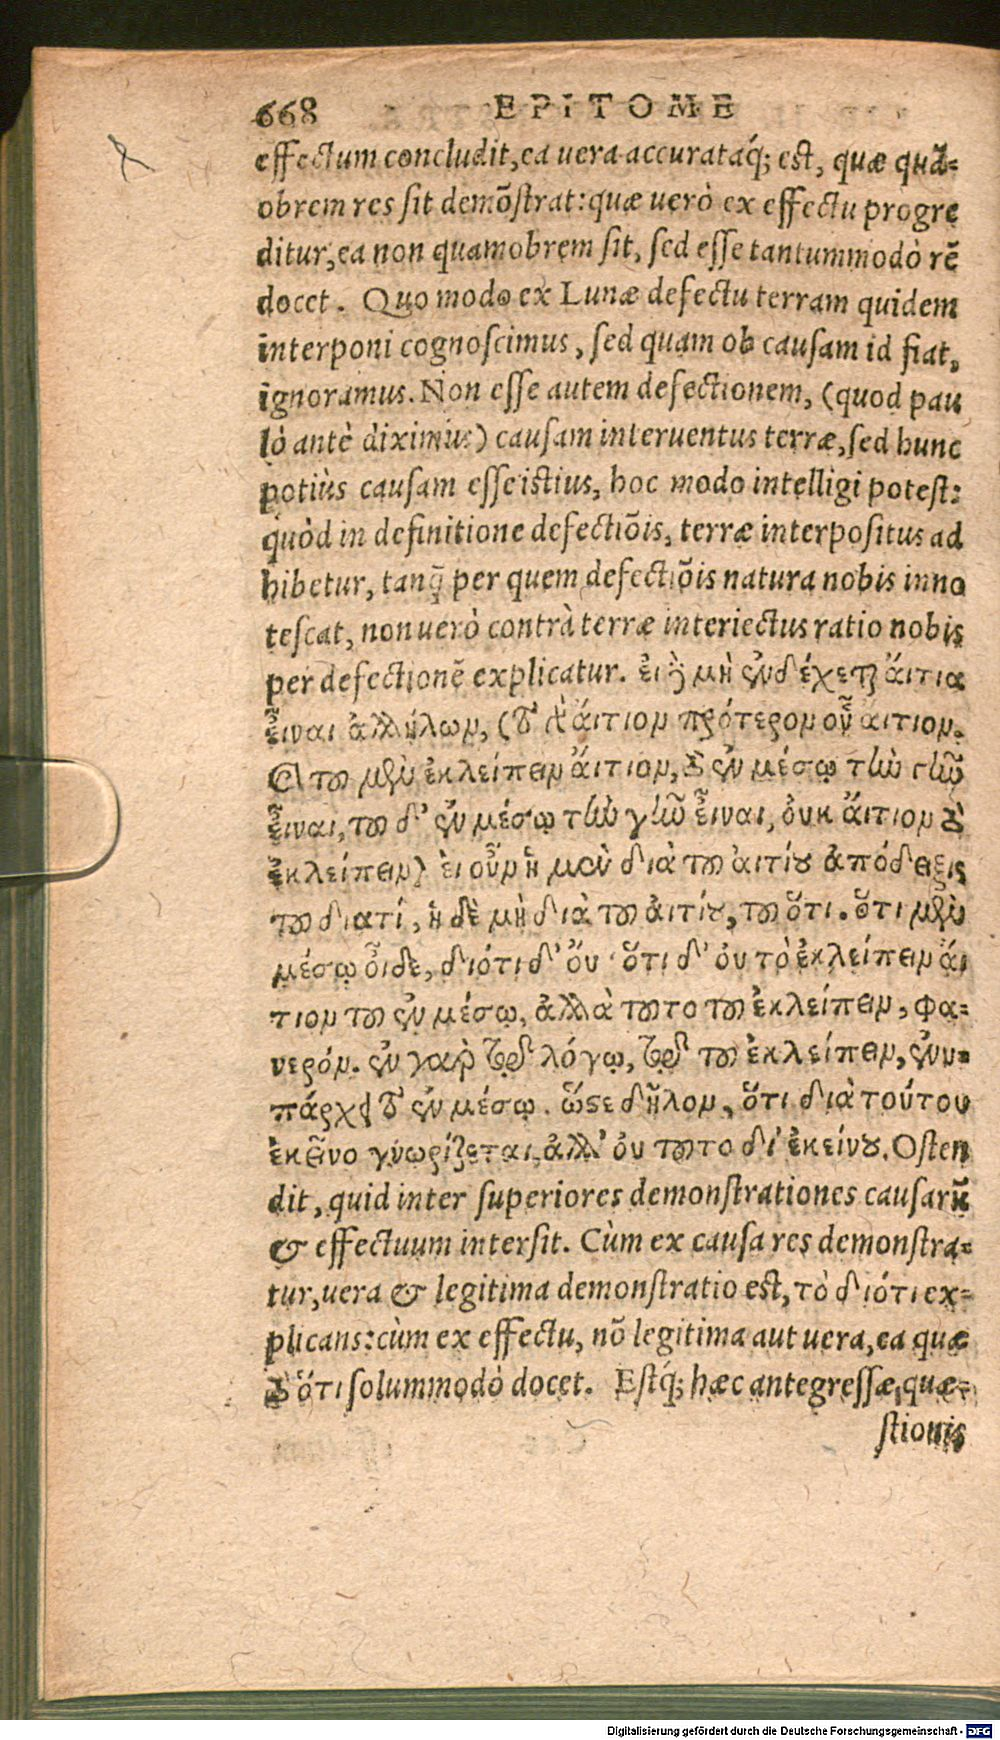 668 EPITOME
effectum concludit, ea vera accurataq́; est, quæ quā-
obrem res sit demōstrat: quæ uerò ex effectu progre
ditur, ea non quamobrem sit, sed esse tantummodò rē
docet. Quo modo ex Lunæ defectu terram quidem
interponi cognoscimus, sed quam ob causam id fiat,
ignoramus. Non esse autem defectionem, (quod pau
lò antè diximus) causam interuentus terræ, sed hunc
potiùs causam esse istius, hoc modo intelligi potest:
quòd in definitione defectiōis, terræ interpositus ad
hibetur, tanq̃ per quem defectiōis natura nobis inno
tescat, non uerò contrà terræ interiectus ratio nobis
per defectionē explicatur. ἐι γ̀ μὴ ἐνδέχεται ἄιτια
εἶναι ἀλλήλων, (τὸ γὰρ ἄιτιον πρότερον οὗ ἄιτιον.
Καὶ τοῦ μὲν ἐκλείπειν ἄιτιον, τὸ ἐν μέσῳ τὴν γῆν
εἶναι, τοῦ δ' ἐν μέσῳ τὴν γῆν εἶναι, ὀυκ ἄιτιον τὸ
ἐκλείπειν) ἐι οὖν ἡ μὲν διὰ τοῦ ἀιτίου ἀπόδειξις
τοῦ διατί, ἡ δὲ μὴ διὰ τοῦ ἀιτίου, τοῦ ὅτι. ὅτι μὲν
μέσῳ οἶδε, διότι δ' ὄυ· ὅτι δ' ὀυ τὸ ἐκλείπειν ἄι
τιον τοῦ ἐν μέσῳ, ἀλλὰ τοῦτο τοῦ ἐκλείπειν, φα-
νερόν. ἐν γὰρ τῷ λόγῳ, τῷ τοῦ ἐκλείπειν, ἐνυ-
πάρχει τὸ ἐν μέσῳ. ὥστε δῆλον, ὅτι διὰ τούτου
ἐκεῖνο γνωρίζεται, ἀλλ' ὀυ τοῦτο δι' ἐκείνου. Osten
dit, quid inter superiores demonstrationes causarū
& effectuum intersit. Cùm ex causa res demonstra-
tur, uera & legitima demonstratio est, τὸ διότι ex-
plicans: cùm ex effectu, nō legitima aut uera, ea quæ
τὸ ὅτι solummodò docet. Estq́; hæc antegressæ, quæ-
stionis
Digitalisierung gefördert durch die Deutsche Forschungsgemeinschaft - DFG